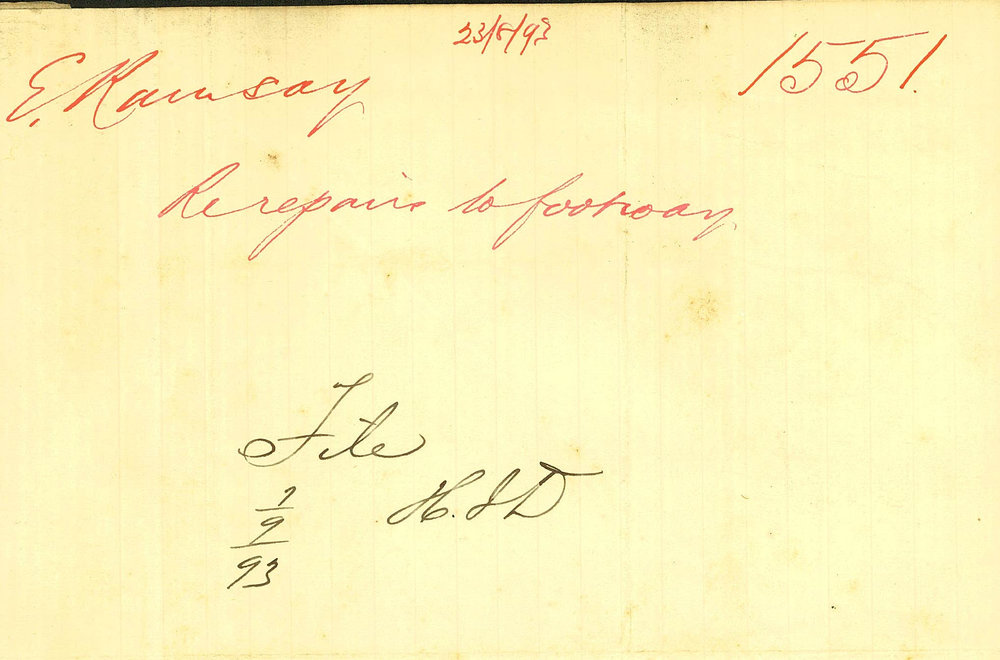 23/8/93
E. Ramsay 1551.
Re repairs to footway
File
1
9
93
H.JD